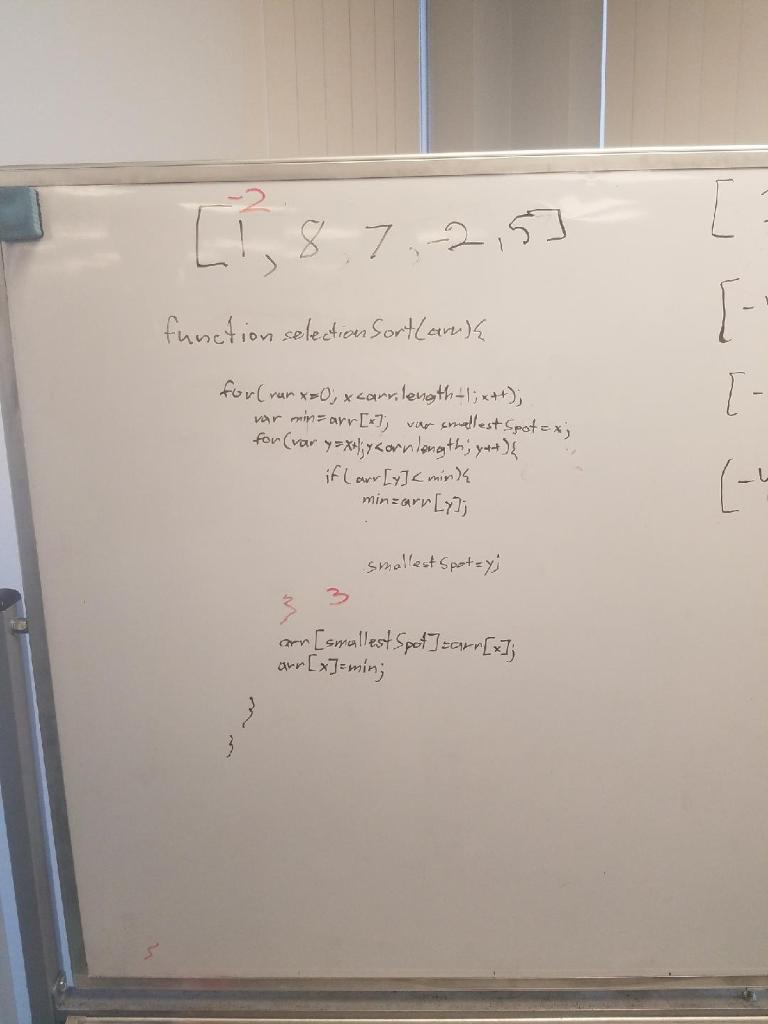 -2
[1, 8, 7, -2, 5]
[
function selectionSort(arr){
[-
for(var x=0; x<arr.length-1; x++);
[-
var min=arr[x]; var smallestSpot=x;
for(var y=x+1;y<arr.length; y++){
if(arr[y]<min){
[-4
min=arr[y];
smallestSpot=y;
} }
arr[smallestSpot]=arr[x];
arr[x]=min;
}
}